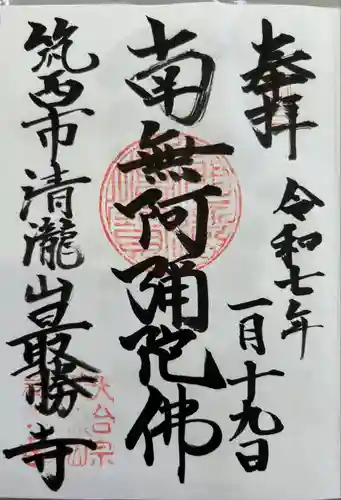 奉拝
令和七年
一月十九日
南無阿彌陀佛
筑西市清瀧山最勝寺